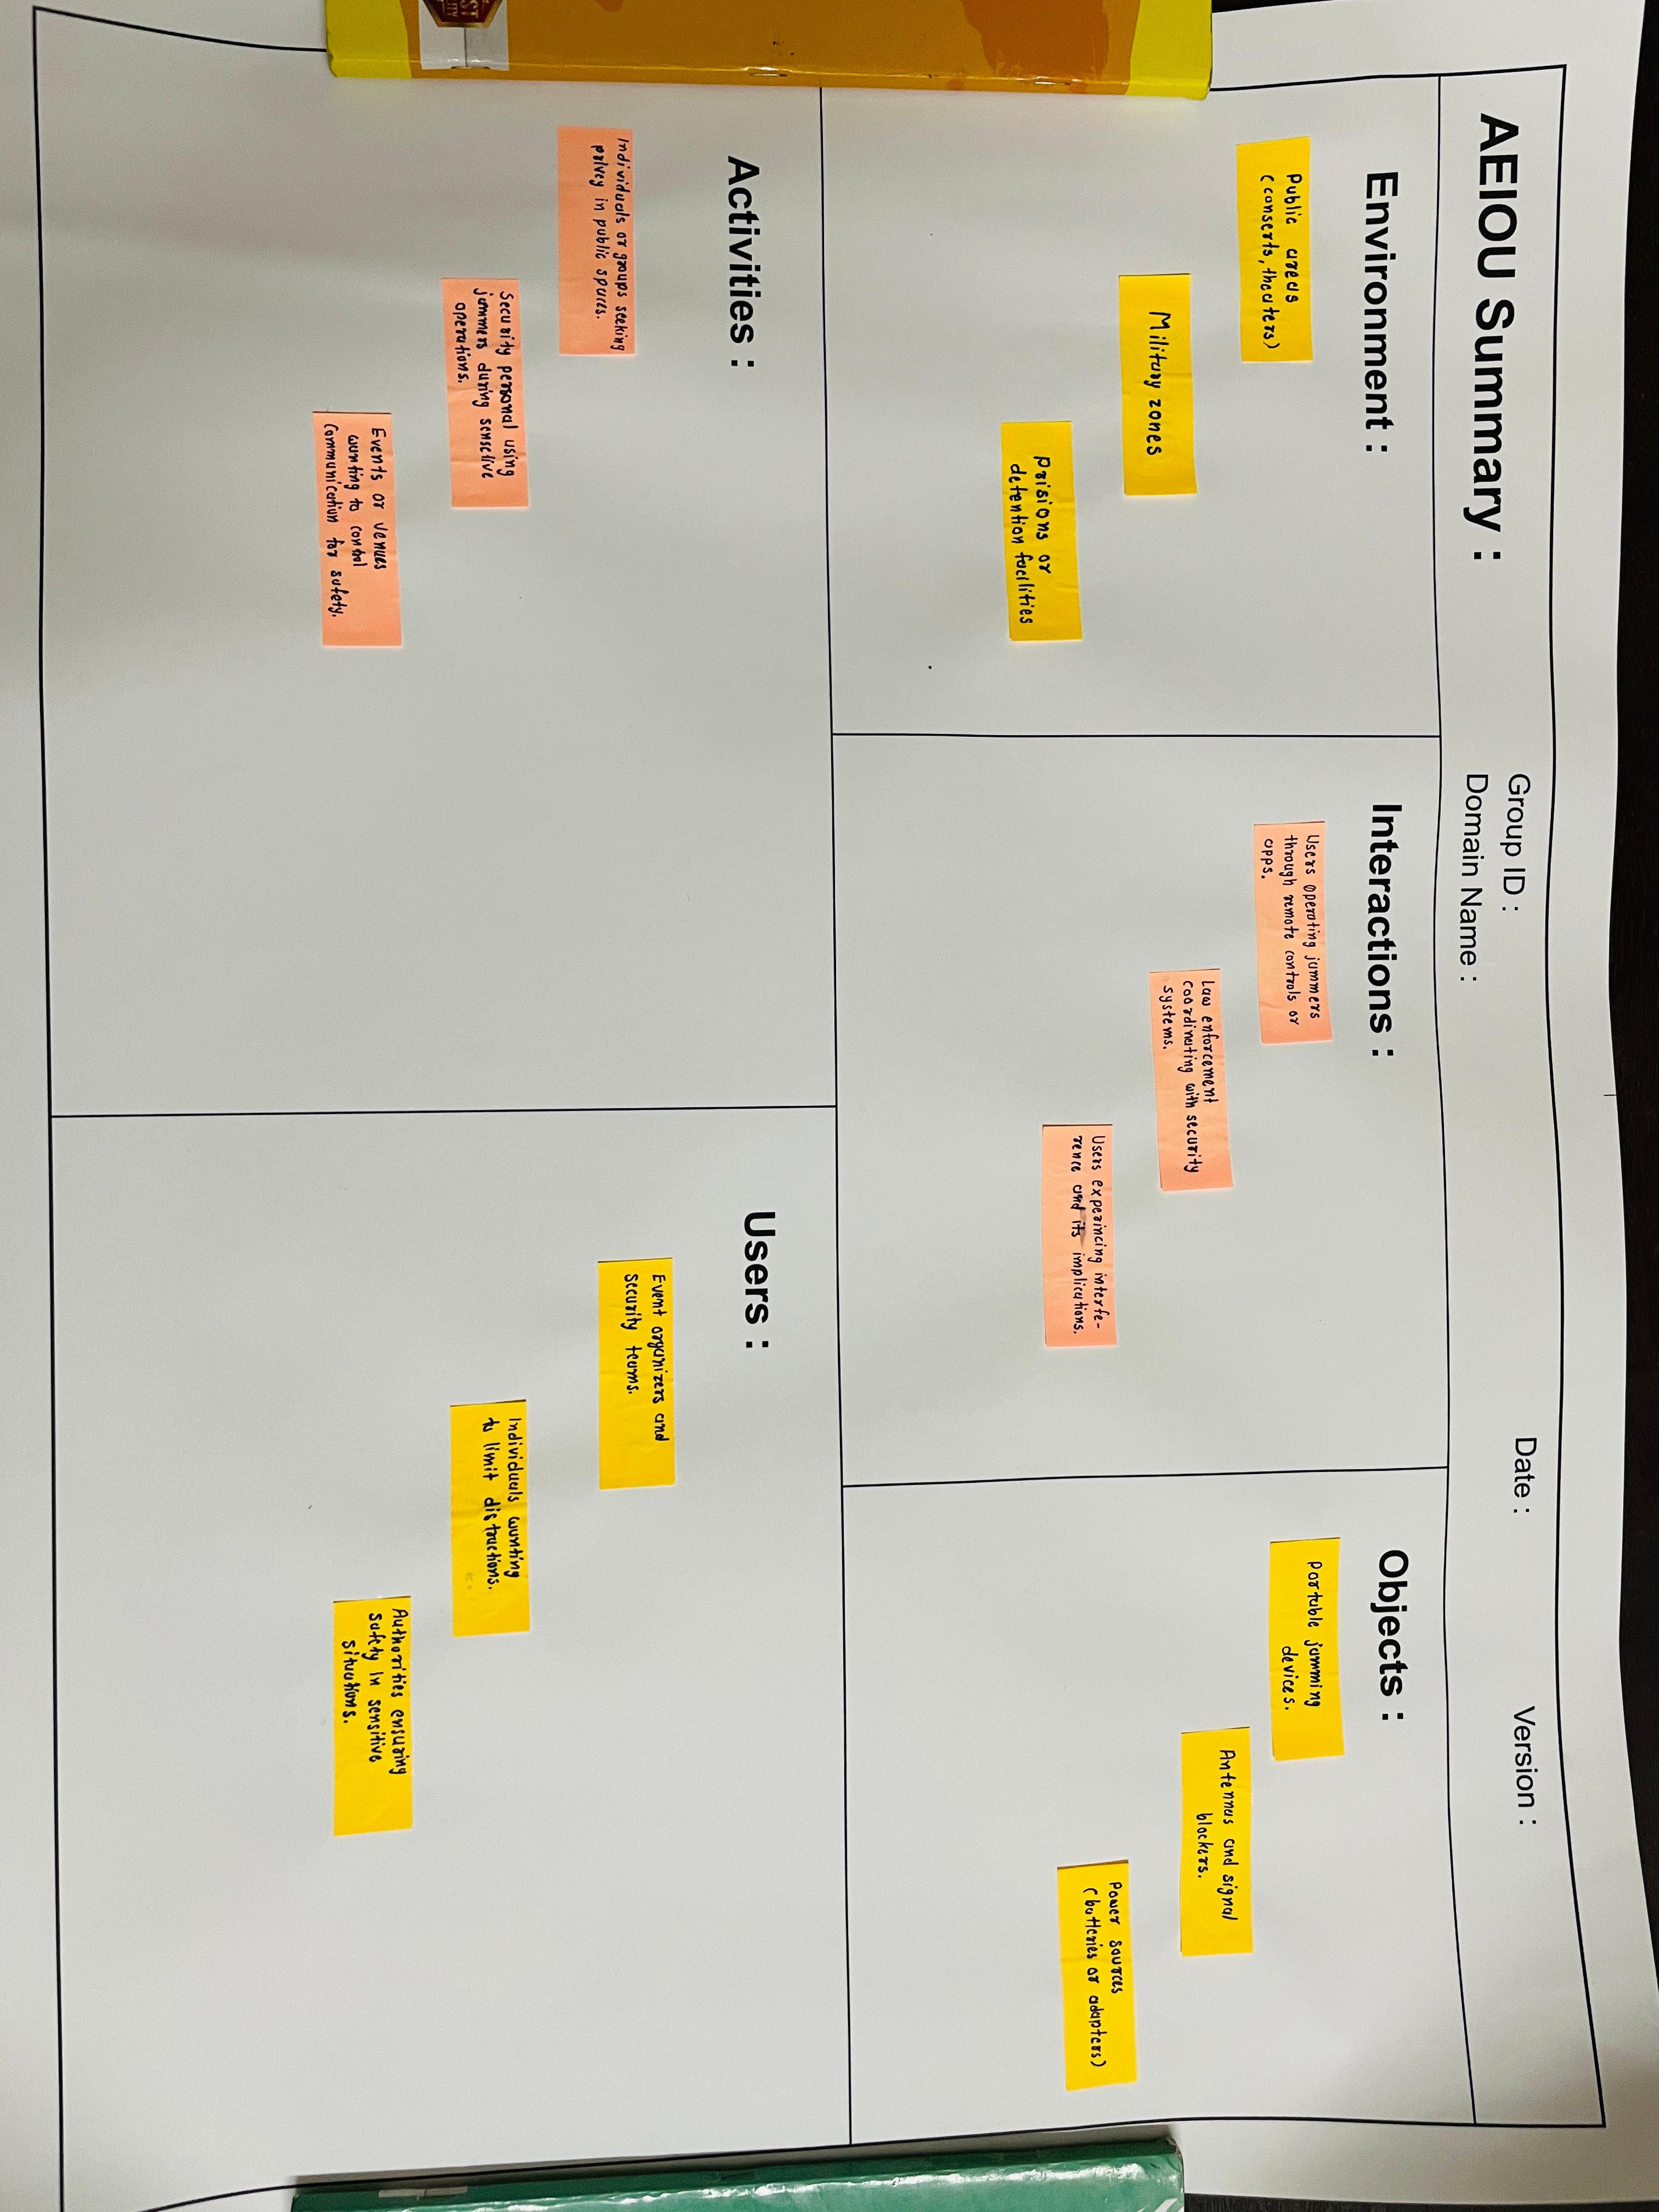 AEIOU Summary :
Group ID :
Domain Name :
Date :
Version :
Environment :
Public areas
(conserts, theaters)
Military zones
Prisions or
detention facilities
Interactions :
Users operating jammers
through remote controls or
apps.
Law enforcement
coordinating with security
systems.
Users experincing interfe-
rence and its implications.
Objects :
Portable jamming
devices.
Antennas and signal
blockers.
Power sources
(batteries or adapters)
Activities :
Individuals or groups seeking
in public spaces.
Security personal using
jammers during sensetive
operations.
Events or venues
wanting to control
communication for safety.
Users :
Event organizers and
security teams.
Individuals wanting
to limit distractions.
Authorities ensuring
safety in sensitive
situations.